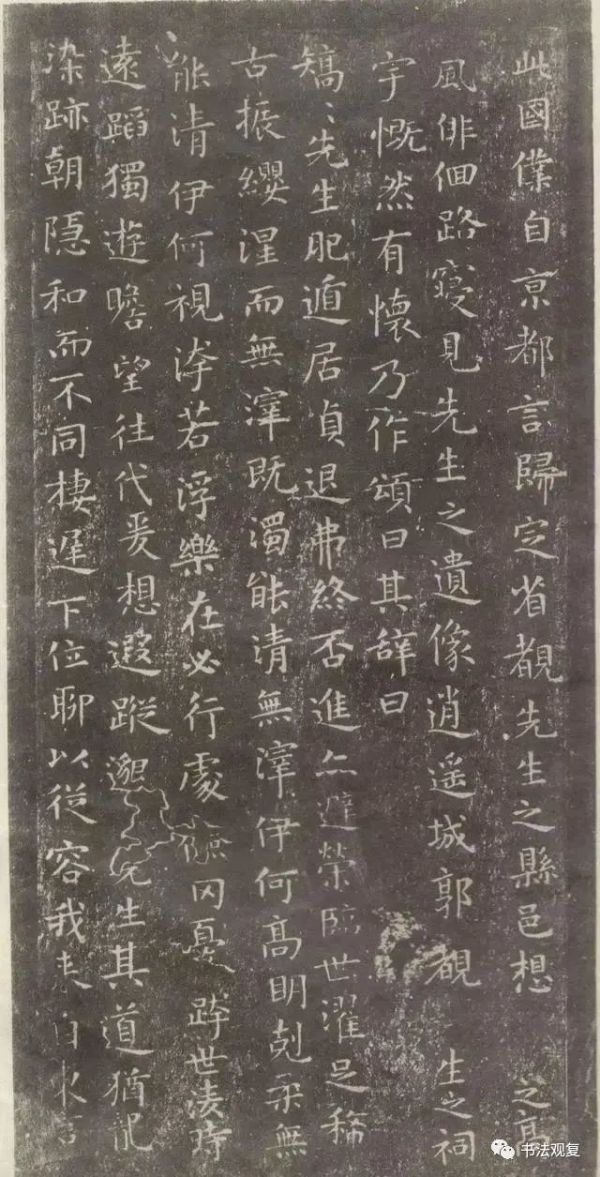 此國僕自京都言歸定省覩先生之縣邑想 之高
風俳佪路寢見先生之遺像逍遥城郭覩 生之祠
宇慨然有懷乃作頌曰其辞曰
矯〻先生肥遁居貞退弗終否進亦避榮臨世濯足稀
古振纓涅而無滓既濁能清無滓伊何高明剋柔無
能清伊何視洿若浮樂在必行處 囚憂跨世凌時
遠蹈獨遊瞻望往代爰想遐蹤邈 先生其道猶龍
染跡朝隐和而不同棲遲下位聊以從容我来自東言
书法观复